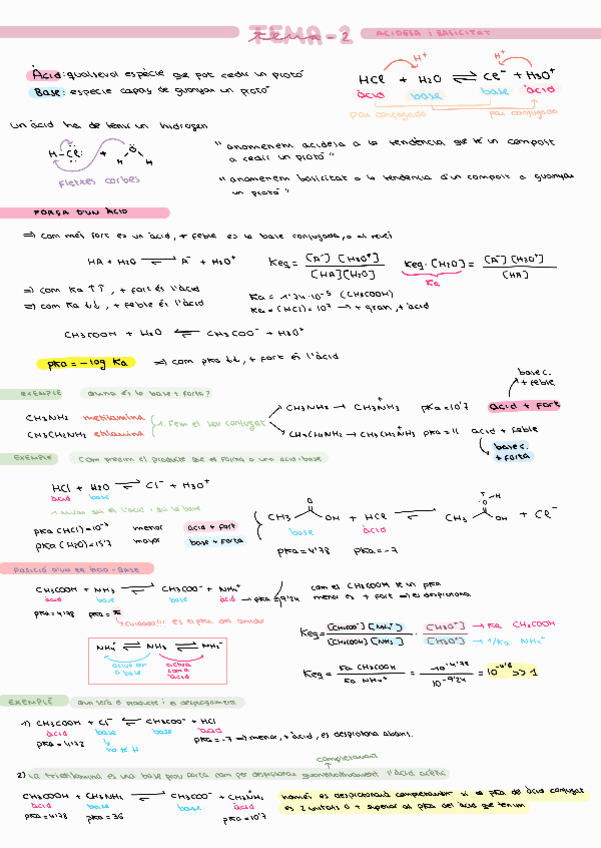 TEMA - 2
ACIDESA I BASICITAT
Àcid: qualsevol espècie que pot cedir un protó
Base: espècie capaç de guanyar un protó
H⁺ H⁺
HCl + H₂O ⇌ Cl⁻ + H₃O⁺
àcid base base àcid
par conjugado par conjugado
Un àcid ha de tenir un hidrogen
H-Cl: + H O H
fletxes corbes
"anomenem acidesa a la tendència que té un compost
a cedir un protó"
"anomenem basicitat a la tendència d'un compost a guanyar
un protó"
FORÇA D'UN ÀCID
⇒ com més fort és un àcid, + feble és la base conjugada, o al revés
HA + H₂O ⇌ A⁻ + H₃O⁺
Keq = [A⁻] [H₃O⁺] / [HA][H₂O]
Keq · [H₂O] = [A⁻] [H₃O⁺] / [HA]
Ka
⇒ com Ka ↑↑, + fort és l'àcid
⇒ com Ka ↓↓, + feble és l'àcid
Ka = 1'74·10⁻⁵ (CH₃COOH)
Ka = (HCl) = 10⁷ → + gran, + àcid
CH₃COOH + H₂O ⇌ CH₃COO⁻ + H₃O⁺
pKa = -log Ka ⇒ com pKa ↓↓, + fort és l'àcid
EXEMPLE Quina és la base + forta?
CH₃NH₂ metilamina
CH₃CH₂NH₂ etilamina
1. Fem el seu conjugat
CH₃NH₂ → CH₃NH₃⁺ pKa = 10'7 àcid + fort
base c. + feble
CH₃CH₂NH₂ → CH₃CH₂NH₃⁺ pKa = 11 àcid + feble
base c. + forta
EXEMPLE Com predim el producte que es forma a una àcid-base
HCl + H₂O ⇌ Cl⁻ + H₃O⁺
àcid base
pKa (HCl) = 10⁻⁷ menor àcid + fort
pKa (H₂O) = 15'7 major base + forta
CH₃ O OH + HCl ⇌ CH₃ O H OH + Cl⁻
base àcid
pKa = 4'78 pKa = -7
POSICIÓ D'UN EQ ÀCID-BASE
CH₃COOH + NH₃ ⇌ CH₃COO⁻ + NH₄⁺
àcid base base àcid → pKa = 9'24
pKa = 4'78 pKa =
Cuidado!!! és el pKa del amidur
com el CH₃COOH té un pKa
menor és + fort ⇒ es desprotona
NH₄⁺ ⇌ NH₃ ⇌ NH₂⁻
actua com a base
actua com a àcid
Keq = [CH₃COO⁻] [NH₄⁺] / [CH₃COOH] [NH₃] · [H₃O⁺] / [H₃O⁺]
→ Ka CH₃COOH
→ 1/Ka NH₄⁺
Keq = Ka CH₃COOH / Ka NH₄⁺ = 10⁻⁴'⁷⁸ / 10⁻⁹'²⁴ = 10⁴'⁶ >> 1
EXEMPLE Quin serà el producte i el desplaçament
1) CH₃COOH + Cl⁻ ⇌ CH₃COO⁻ + HCl
àcid base base àcid
pKa = 4'72
no té H
pKa = -7 ⇒ menor, + àcid, es desprotona abans.
completament
2) La trietilamina és una base prou forta com per desprotonar quantitativament l'àcid acètic
CH₃COOH + CH₃NH₂ ⇌ CH₃COO⁻ + CH₃NH₃⁺
àcid base base àcid
pKa = 4'78 pKa = 36 pKa = 10'7
només es desprotonarà completament si el pKa de l'àcid conjugat
és 2 unitats o + superior al pKa del àcid que tenim